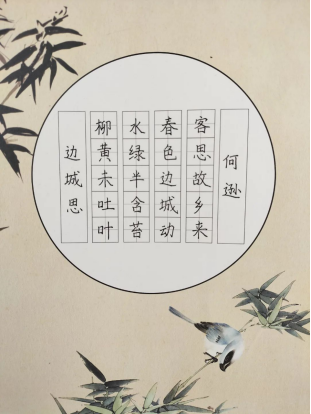 边城思
柳黄未吐叶
水绿半含苔
春色边城动
客思故乡来
何逊